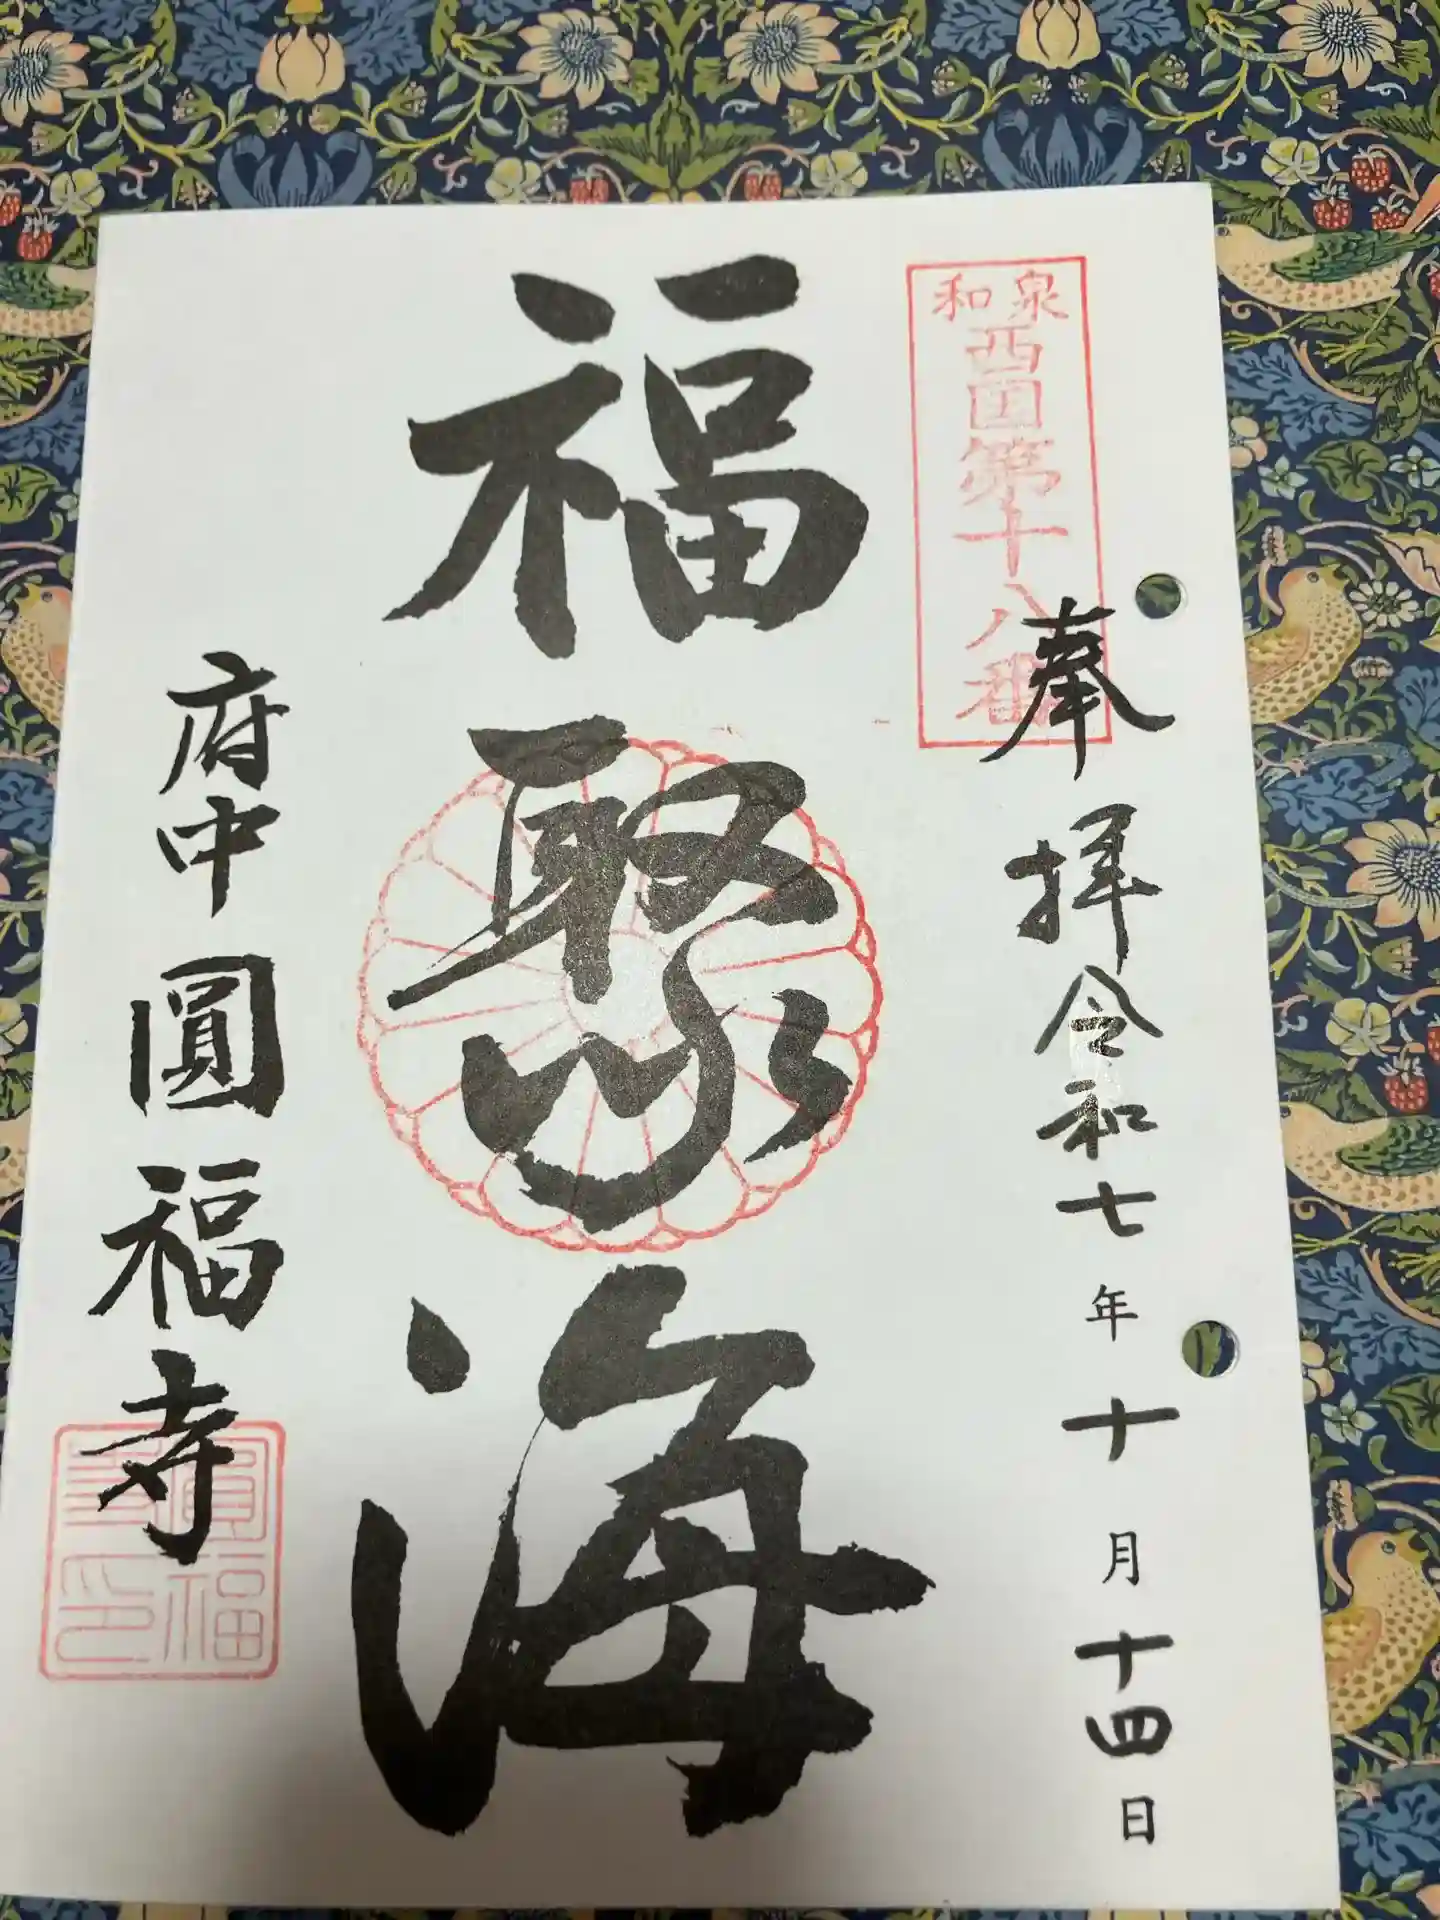 和泉
西国第十八番
奉拝
令和七年十月十四日
福聚海
府中
圓福寺
圓福寺印